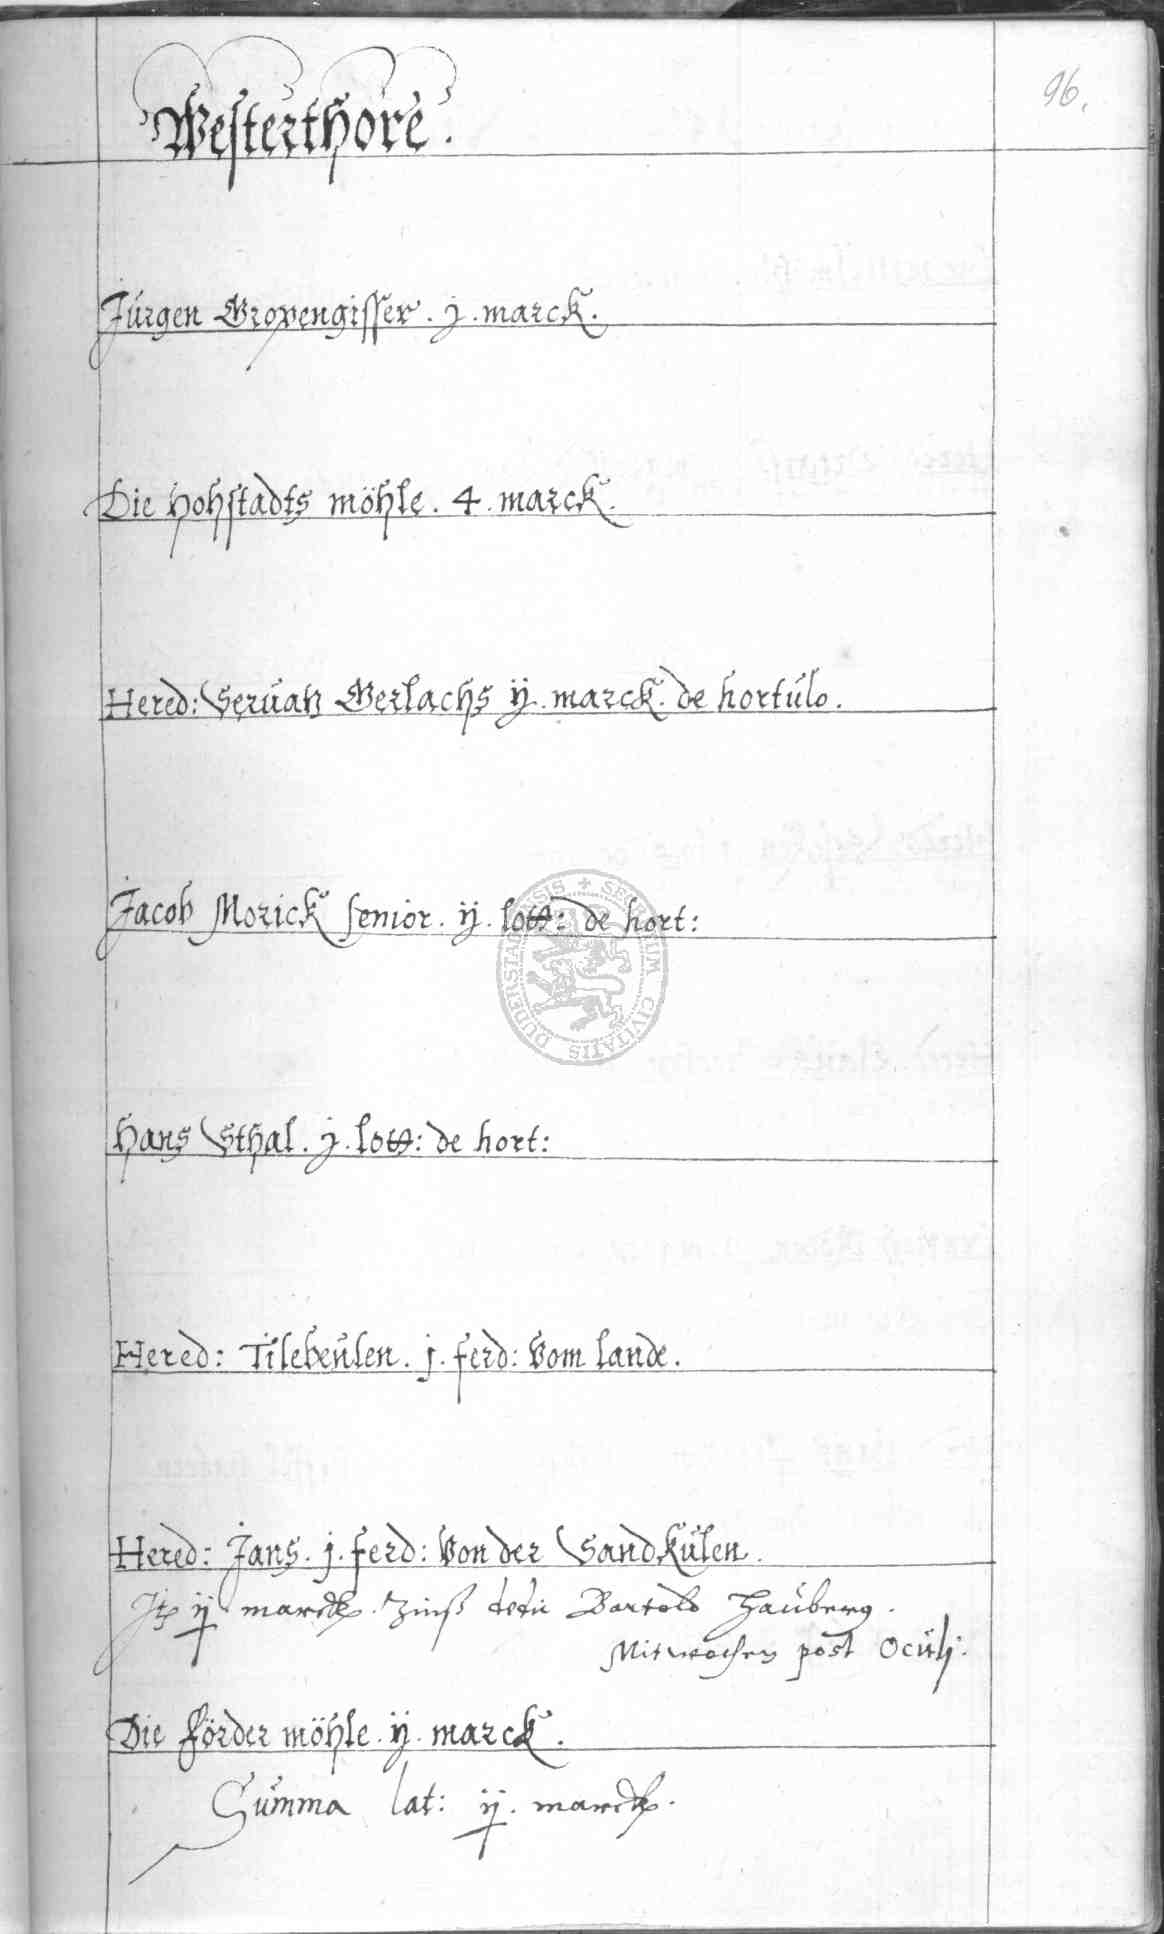 96.
Westerthore.
Jürgen Gropengisser. j. marck.
Die Hohstadts möhle. 4. marck.
Hered: Servatz Gerlachs ij. marck. de hortulo.
Jacob Morick senior. ij. lott: de hort:
SECRETUM CIVITATIS DUDERSTADENSIS
Hans Sthal. j. lott: de hort:
Hered: Tilebeulen. j. ferd: Vom lande.
Hered: Jans. j. ferd: Von der Sandkülen.
ij marck. Zinß Bartold Hauberg.
Mitwochen post Oculj.
Die förder möhle. ij. marck.
Summa lat: ij. marck.